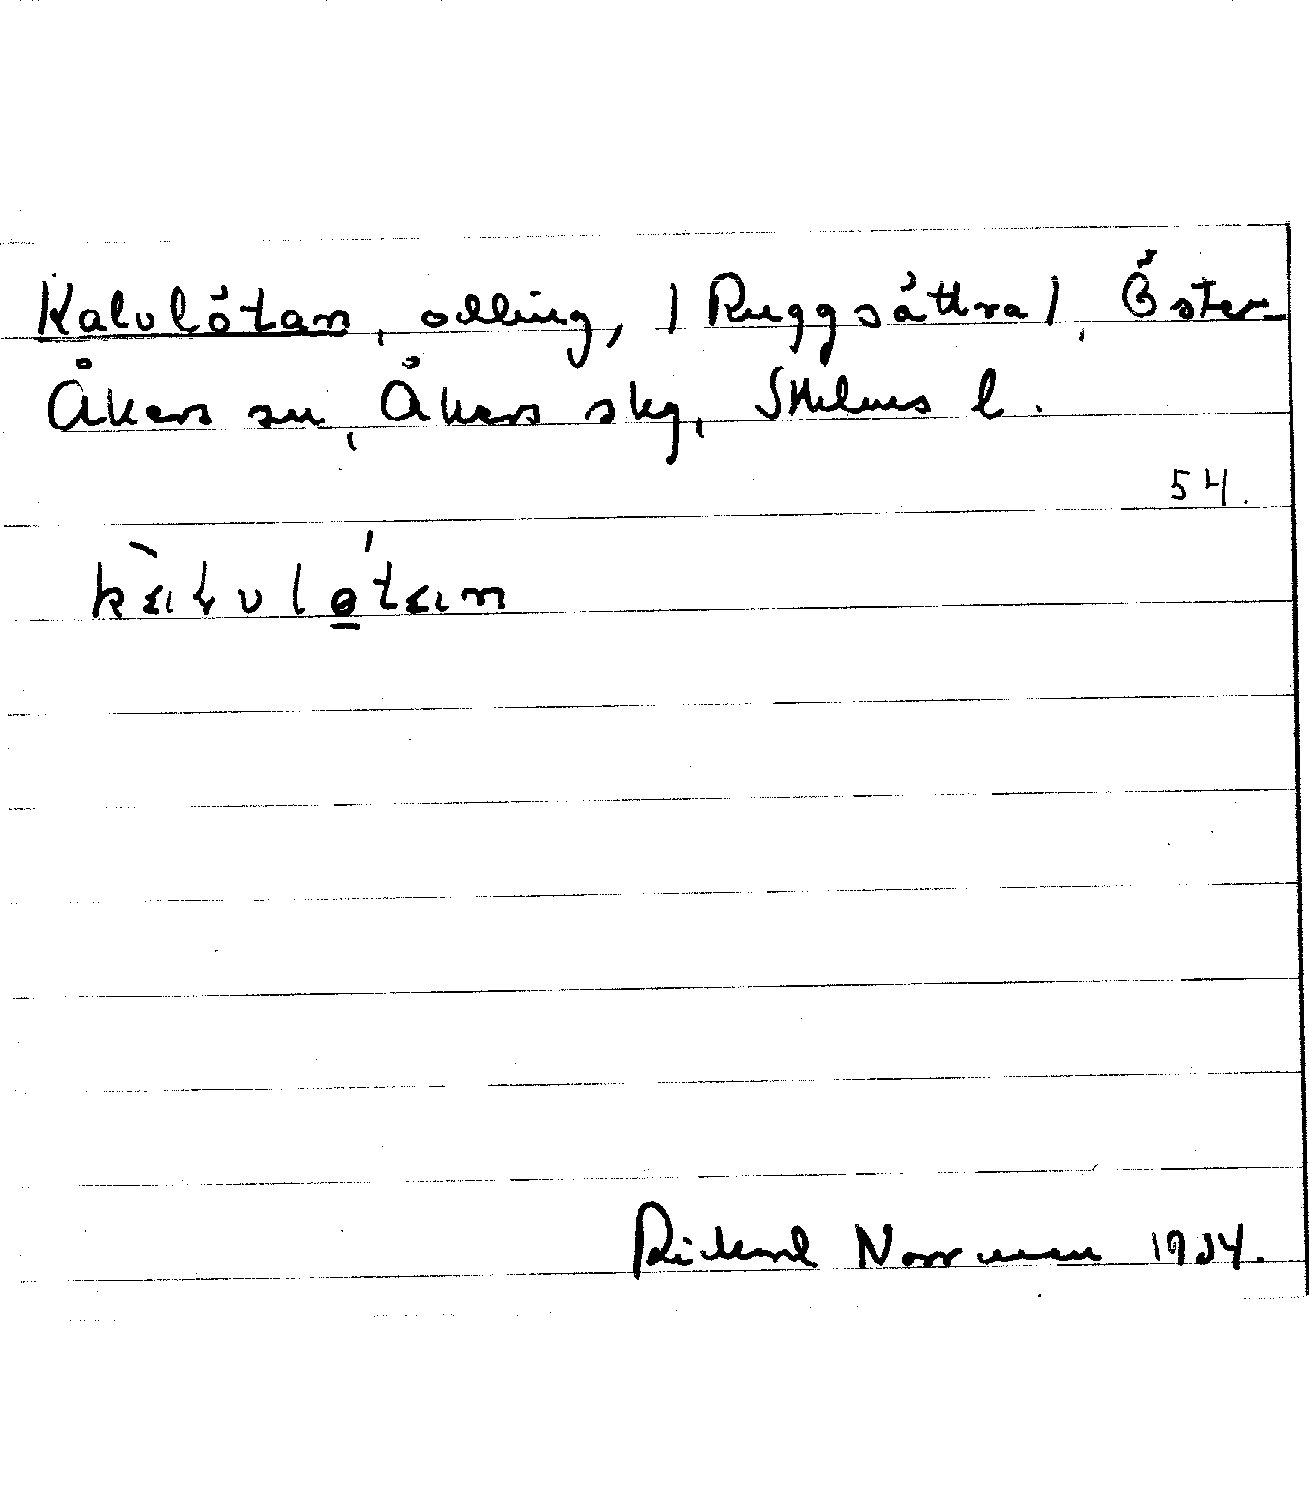 Kalvlötan, odling, /Ruggsättra/, Öster-
Åkers sn, Åkers skg, Sthlms l.
54.
Rickard Norrman 1934.